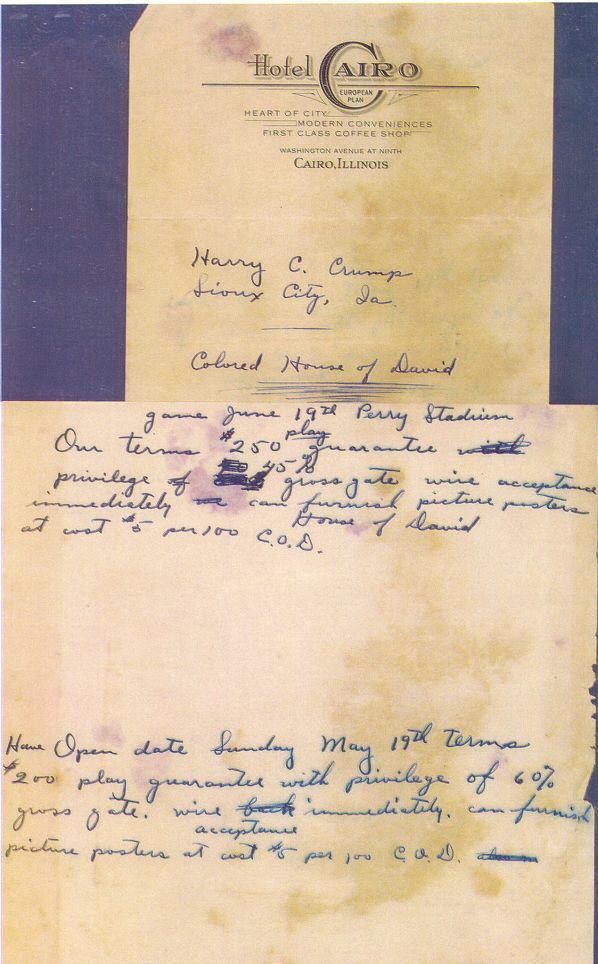 Hotel CAIRO
EUROPEAN
PLAN
HEART OF CITY
MODERN CONVENIENCES
FIRST CLASS COFFEE SHOP
WASHINGTON AVENUE AT NINTH
CAIRO, ILLINOIS
Harry C. Crump
Sioux City, Ia.
Colored House of David
game June 19th Perry Stadium
play
Our terms $250 guarantee with
45%
privilege of gross gate wire acceptance
immediately we can furnish picture posters
House of David
at cost $5 per 100 C.O.D.
Have Open date Sunday May 19th terms
$200 play guarantee with privilege of 60%
gross gate. wire back immediately. can furnish
acceptance
picture posters at cost $5 per 100 C.O.D.